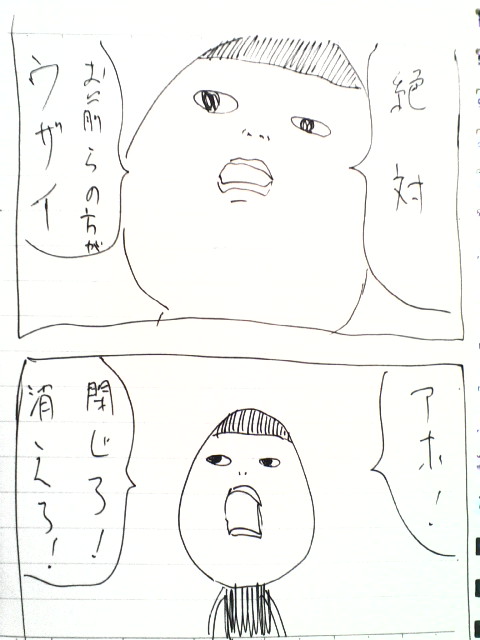 絶対
お前らの方が
ウザイ
アホ！
閉じろ！
消えろ！